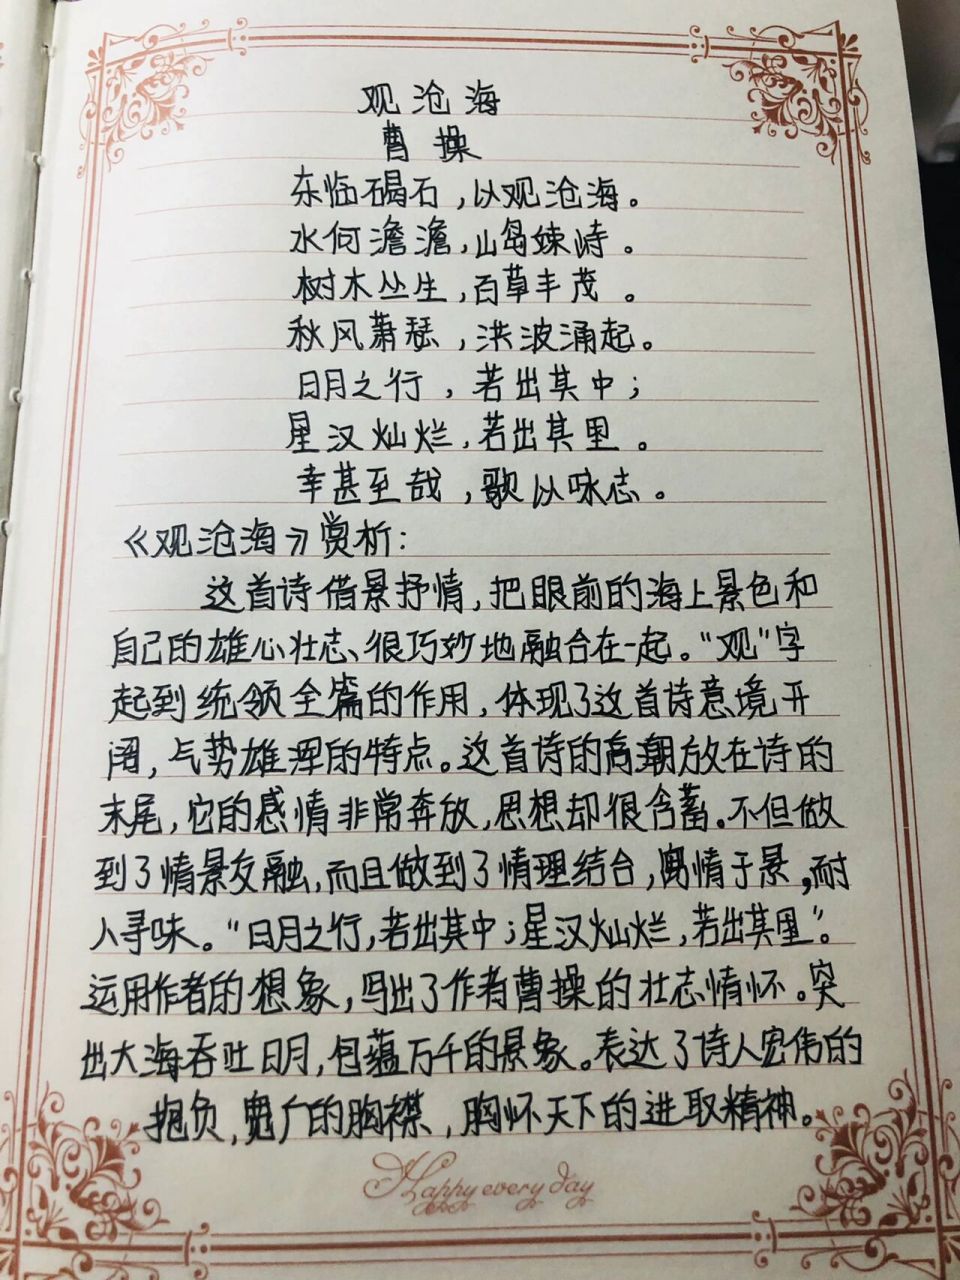 观沧海
曹操
东临碣石,以观沧海。
水何澹澹,山岛竦峙。
树木丛生,百草丰茂。
秋风萧瑟,洪波涌起。
日月之行,若出其中;
星汉灿烂,若出其里。
幸甚至哉,歌以咏志。
《观沧海》赏析:
这首诗借景抒情,把眼前的海上景色和
自己的雄心壮志、很巧妙地融合在一起。“观”字
起到统领全篇的作用,体现了这首诗意境开
阔,气势雄浑的特点。这首诗的高潮放在诗的
末尾,它的感情非常奔放,思想却很含蓄。不但做
到了情景交融,而且做到了情理结合,寓情于景,耐
人寻味。“日月之行,若出其中;星汉灿烂,若出其里”。
运用作者的想象,写出了作者曹操的壮志情怀。突
出大海吞吐日月,包蕴万千的景象。表达了诗人宏伟的
抱负,宽广的胸襟,胸怀天下的进取精神。
Happy every day